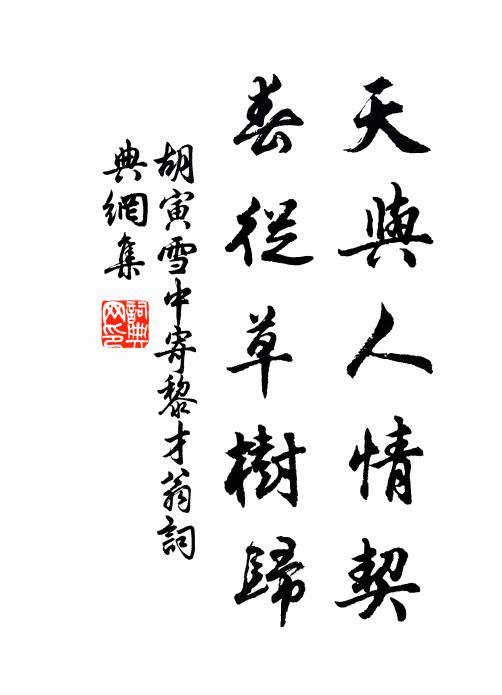 天與人情契
春從草樹歸
胡寅雪中寄黎才翁詞
典網集
詞典
网印